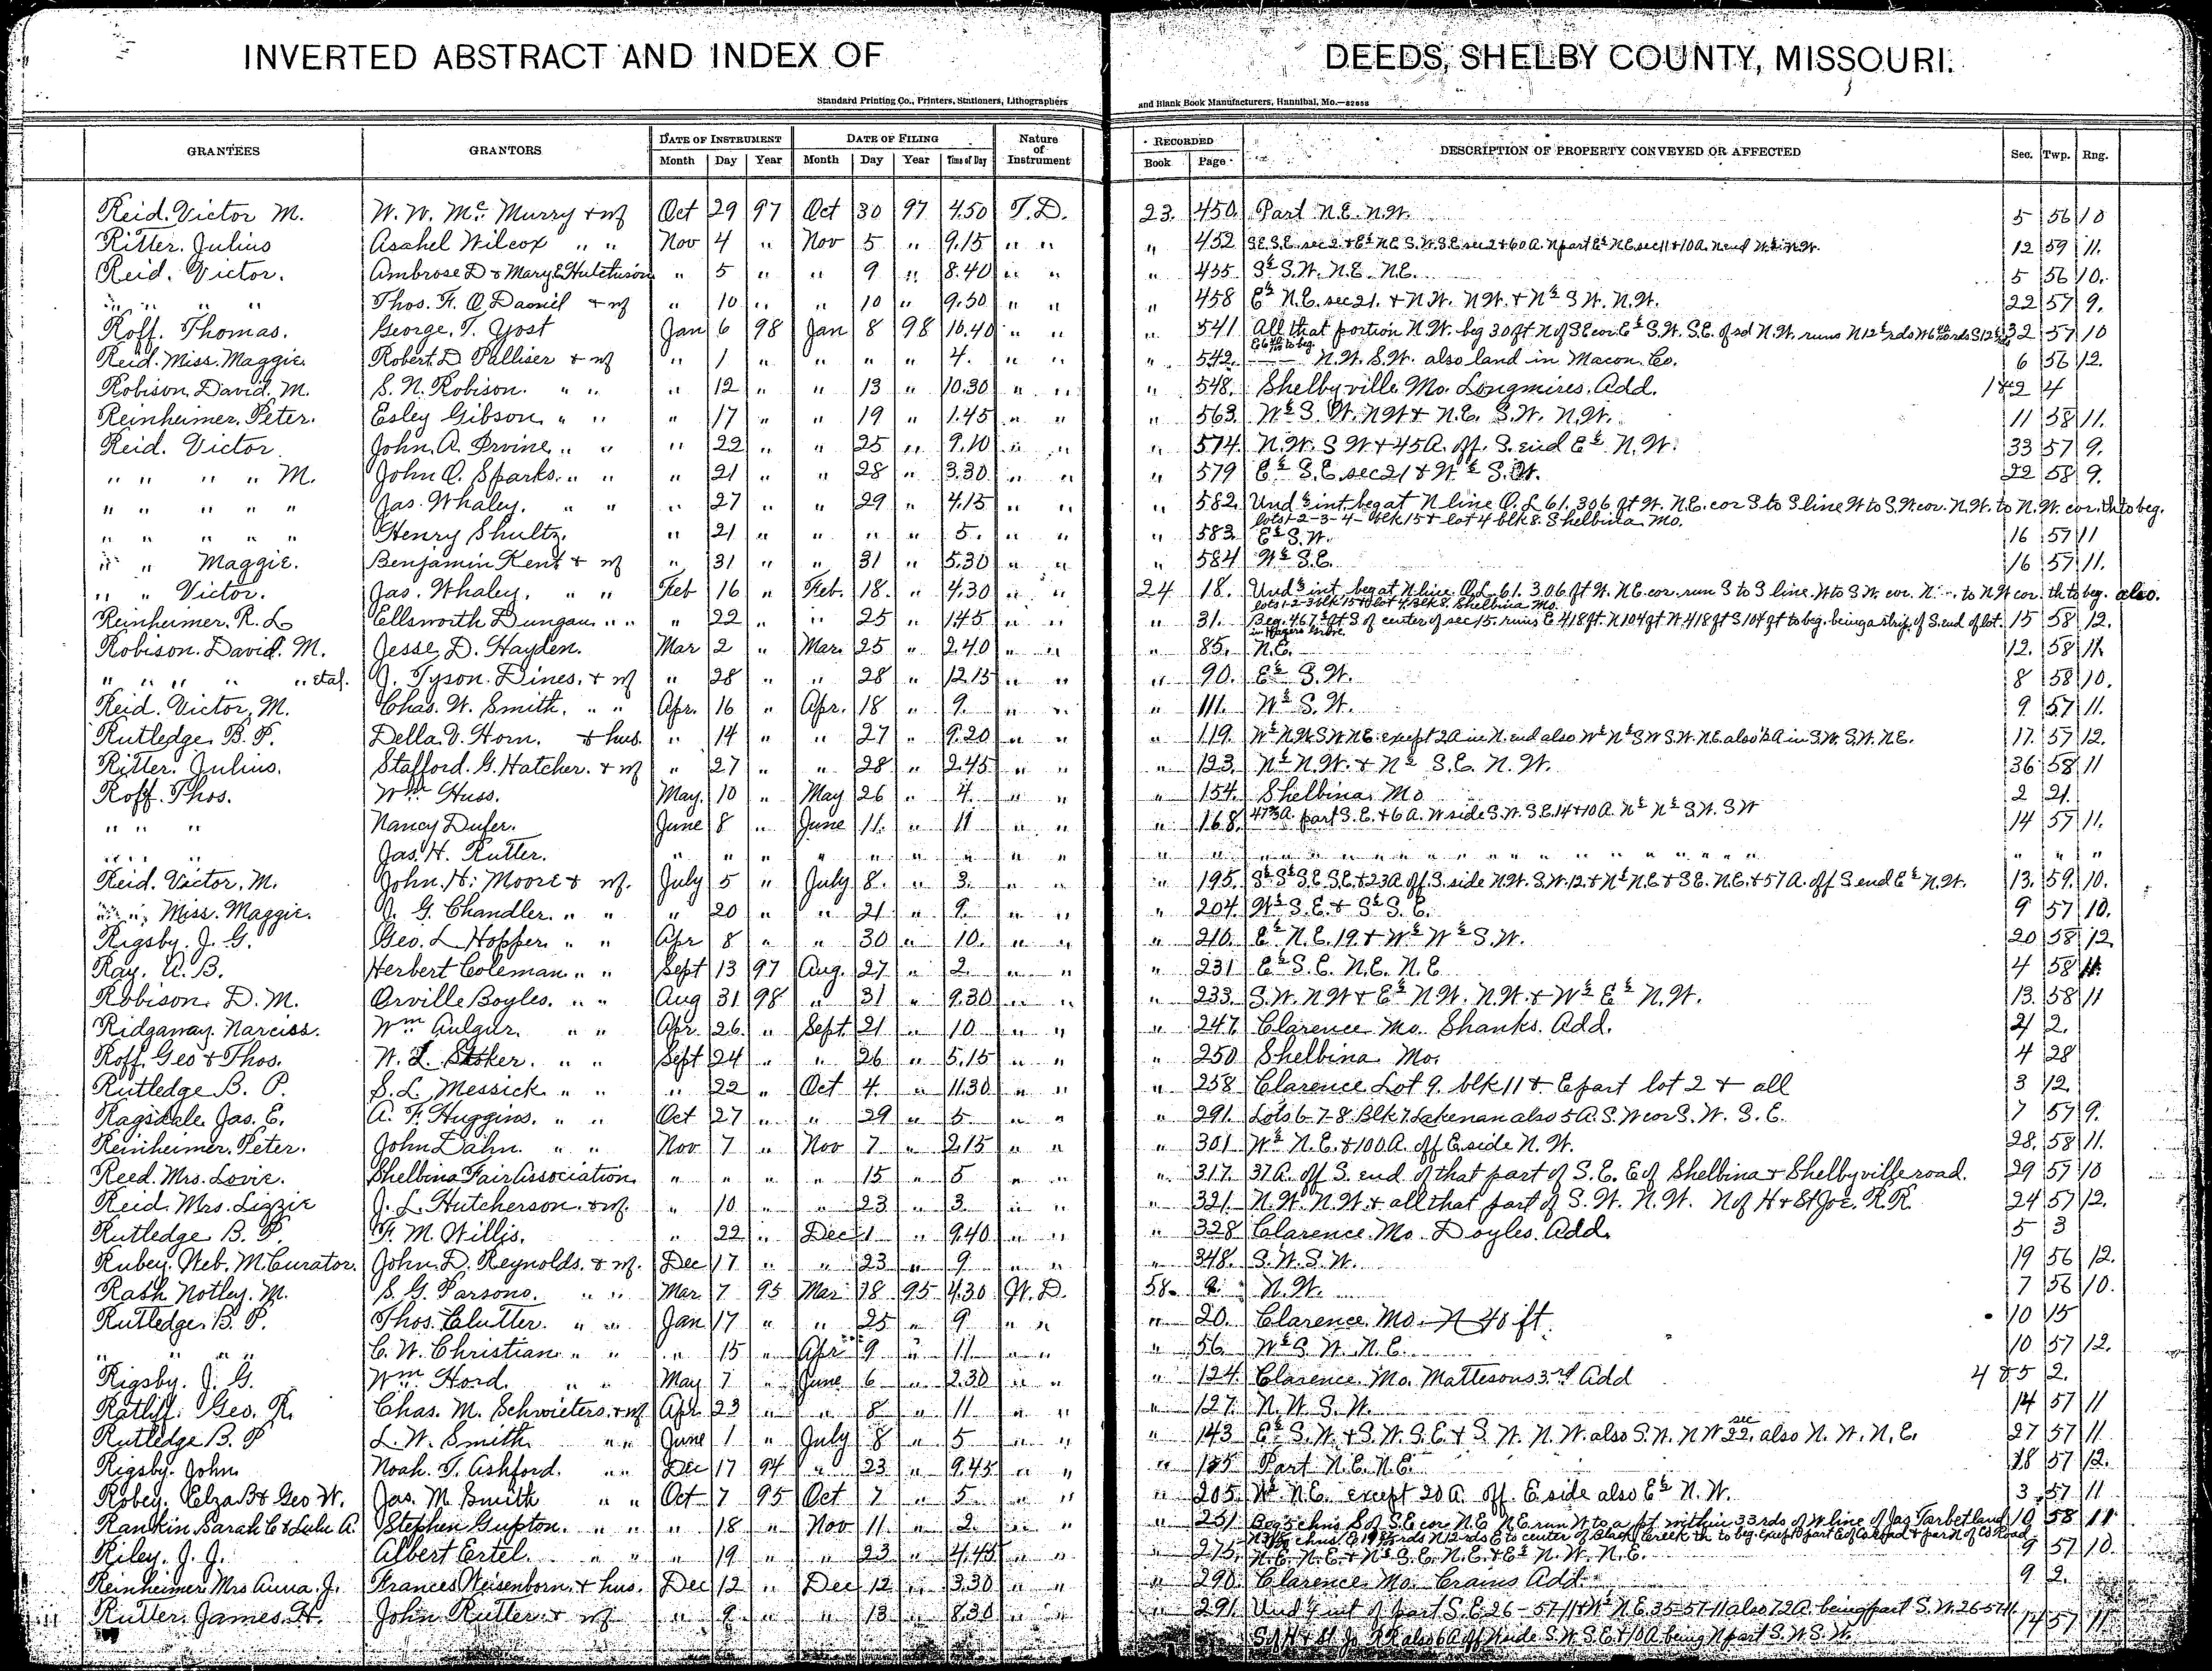 INVERTED ABSTRACT AND INDEX OF DEEDS, SHELBY COUNTY, MISSOURI.
Standard Printing Co., Printers, Stationers, Lithographers and Blank Book Manufacturers, Hannibal, Mo.—82658
GRANTEES GRANTORS DATE OF INSTRUMENT DATE OF FILING Nature of Instrument RECORDED DESCRIPTION OF PROPERTY CONVEYED OR AFFECTED Sec. Twp. Rng.
Month Day Year Month Day Year Time of Day Book Page
Reid. Victor M. W. W. Mc. Murry & wf Oct 29 97 Oct 30 97 4.50 T.D. 23. 450. Part N.E. N.W. 5 56 10
Ritter. Julius Asahel Wilcox " " Nov 4 " Nov 5 " 9.15 " " " 452 12 59 11.
Reid. Victor. Ambrose D & Mary E Hutchison " 5 " " 9 " 8.40 " " " 455 S½ S.W. N.E. N.E. 5 56 10.
" " " " Thos. F. O Daniel & wf " 10 " " 10 " 9.30 " " " 458 E½ N.E. sec 21. & N.W. N.W. & N½ S.W. N.W. 22 57 9.
Roff. Thomas. George. T. Yost Jan 6 98 Jan 8 98 10.40 " " " 541 All that portion N.W. beg 30 ft N of S E cor E½ S.W. S.E. of sd N.W. runs N 12½ rds 32 57 10
Reid. Miss. Maggie. Robert. D Palliser & wf " 1 " " " " 4. " " " 542. N.W. S.W. also land in Macon. Co. 6 56 12.
Robison. David. M. S. N. Robison. " " " 12 " " 13 " 10.30 " " " 548. Shelbyville Mo. Longmires. Add. 1&2 4
Reinheimer. Peter. Esley Gibson " " " 17 " " 19 " 1.45 " " " 563. W½ S. W. N.W & N.E. S.W. N.W. 11 58 11.
Reid. Victor John. A. Irvine " " " 22 " " 25 " 9.10 " " " 574. N.W. S W & 45 A. off. S. end E½ N.W. 33 57 9.
" " " " M. John O. Sparks. " " " 21 " " 28 " 3.30 " " " 579 E½ S.E. sec 21 & W½ S.W. 22 58 9.
" " " " " Jas. Whaley. " " " 27 " " 29 " 4.15 " " " 582. Und ½ int. beg at N line O.L 61. 306 ft W. N.E. cor S to S line W to S.W. cor. N.W. to N.W. cor. th to beg.
lots 1-2-3-4- blk 15 & lot 4 blk 8. Shelbina Mo.
" " " " " Henry Shultz. " 21 " " " " 5. " " " 583. E½ S.W. 16 57 11
" " Maggie. Benjamin Kent & wf " 31 " " 31 " 5.30 " " " 584 W½ S.E. 16 57 11.
" " Victor. Jas. Whaley. " " Feb 16 " Feb. 18. " 4.30 " " 24 18. Und ½ int beg at N line O.L 61. 306 ft W. N.E. cor. run S to S line. W to S.W. cor. N. to N.W cor. th to beg. also.
lots 1-2-3 blk 15 & lot 4 blk 8. Shelbina Mo.
Reinheimer. R. L Ellsworth Dungan " " " 22 " " 25 " 1.45 " " " 31. Beg. 467 ft S of center of sec 15. runs E 418 ft. N 104 ft W. 418 ft S 104 ft to beg. being a strip of S. end of lot. 15 58 12.
Robison. David. M. Jesse D. Hayden. Mar 2 " Mar. 25 " 2.40 " " " 85. N.E. 12. 58 11.
" " " " " etal. J. Tyson. Dines. & wf " 28 " " 28 " 12.15 " " " 90. E½ S.W. 8 58 10.
Reid. Victor. M. Chas. W. Smith. " " Apr. 16 " Apr. 18 " 9. " " " 111. W½ S.W. 9 57 11.
Rutledge. B. P. Della. V. Horn. & hus. " 14 " " 27 " 9.20 " " " 119. W½ N.W S.W N.E. except 2A in N. end also W½ N½ S W S.W. N.E. also ½ A in S.W. S.W. N.E. 17. 57 12.
Ritter. Julius. Stafford. G. Hatcher. & wf " 27 " " 28 " 2.45 " " " 123. N½ N.W. & N½ S.E. N.W. 36 58 11
Roff. Thos. Wm Huss. May. 10 " May 26 " 4. " " " 154. Shelbina Mo 2 21.
" " " Nancy Dufer. June 8 " June 11. " 11 " " " 168. part S.E. & 6 A. W side S.W. S.E. 14 & 10 A. N½ N½ S.W. S W 14 57 11.
" " " Jas. H. Rutter. " " " " " " " " " " " " " " "
Reid. Victor. M. John. H. Moore & wf. July 5 " July 8. " 3. " " " 195. S½ S½ S.E. S.E. & 23 A. off S. side N.W. S.W. 12. & N½ N.E & S E. N.E. & 57 A. off S end E½ N.W. 13. 59. 10.
" " Miss. Maggie. J. G. Chandler. " " " 20 " " 21 " 9. " " " 204. W½ S.E. & S½ S.E. 9 57 10.
Rigsby. J. G. Geo. L Hopper " " Apr 8 " " 30 " 10. " " " 210. E½ N.E. 19. & W½ W½ S.W. 20 58 12
Ray. A. B. Herbert Coleman " " Sept 13 97 Aug. 27 " 2. " " " 231 E½ S.E. N.E. N.E 4 58 11.
Robison. D. M. Orville Boyles. " " Aug 31 98 " 31 " 9.30 " " " 233. S.W. N W & E½ N.W. N.W. & W½ E½ N.W. 13. 58 11
Ridgaway. Narciss. Wm Aulgur. " " Apr. 26. " Sept. 21 " 10 " " " 247. Clarence Mo. Shanks. Add. 21 2.
Roff. Geo & Thos. W. L Stoker. " " Sept 24 " " 26 " 5.15 " " " 250 Shelbina. Mo. 4 28
Rutledge B. P. S. L. Messick " " " 22 " Oct 4. " 11.30 " " " 258 Clarence Lot 9. blk 11 & E part lot 2 & all 3 12.
Ragsdale. Jas. E. A. F. Huggins. " " Oct 27 " " 29 " 5 " " " 291. Lots 6-7-8. Blk 7 Lakenan also 5 A. S.W cor S. W. S.E. 7 57 9.
Reinheimer. Peter. John Dahn. " " Nov 7 " Nov 7 " 2.15 " " " 301. W½ N.E. & 100 A. off E side N.W. 28. 58 11.
Reed. Mrs. Lovie. Shelbina Fair Association. " " " " 15 " 5 " " " 317. 37 A. off S. end of that part of S.E. E of Shelbina & Shelbyville road. 29 57 10
Reid. Mrs. Lizzie J. L. Hutcherson. & wf. " 10 " " 23 " 3. " " " 321. N.W. N.W. & all that part of S.W. N.W. N of H & St Joe. R.R. 24 57 12.
Rutledge B. P. F. M. Willis. " 22 " Dec 1 " 9.40 " " " 328 Clarence. Mo. Doyles. Add. 5 3
Rubey. Web. M Curator. John. D. Reynolds. & wf. Dec 17 " " 23 " 9 " " " 348. S.W. S.W. 19 56 12.
Rash Notley. M. S. G. Parsons. " " Mar 7 95 Mar 18 95 4.30 W.D. 58. N.W. 7 56 10.
Rutledge. B. P. Thos. Clutter. " " Jan 17 " " 25 " 9 " " " 20. Clarence Mo. N 40 ft. 10 15
" " " " C. W. Christian " " " 15 " Apr 9 " 11 " " " 56. W½ S W. N.E. 10 57 12.
Rigsby. J. G. Wm Hord. " " May 7 " June 6 " 2.30 " " " 124. Clarence. Mo. Mattesons 3rd Add 4 & 5 2.
Ratliff. Geo. R. Chas. M. Schwieters. & wf Apr 23 " " 8 " 11 " " " 127. N.W. S.W. 14 57 11
Rutledge B. P L. W. Smith " " June 1 " July 8 " 5 " " " 143 E½ S.W. & S.W. S.E & S.W. N.W. also S.W. N W sec 22. also N.W. N.E. 27 57 11
Rigsby. John. Noah. T. Ashford. " " Dec 17 94 " 23 " 9.45 " " " Part N.E. N.E. 18 57 12.
Robey. Elza B & Geo W. Jas. M. Smith " " Oct 7 95 Oct 7 " 5 " " " 205. W½ N.E. except 20 A. off E side also E½ N.W. 3 57 11
Rankin Sarah E & Lulu A. Stephen Gupton. " " " 18 " Nov 11 " 2. " " " 251 Beg 5 chns S of S E cor N.E. N.E. run W to a pt within 33 rds of W line of Jas Tarbet land 10 58 11
Riley. J. J. Albert Ertel. " " " 19 " " 23 " 4.45 " " " 275. N.E. N.E. & N½ S.E. N.E. & E½ N.W. N.E. 9 57 10.
Reinheimer Mrs Anna. J. Frances Weisenborn & hus. Dec 12 " Dec 12 " 3.30 " " " 290 Clarence Mo. Crains Add. 9 2.
Rutter. James. H. John Rutter & wf " 9 " " 13 " 8.30 " " " 291 int of part S.E. 26-57-11 & N.E. 35-57-11 also 72 A. being part S.W. 26-57-11 14 57 11
S of H & St Jo RR also 6 A off W side S.W. S.E. & 10 A being N part S.W S.W.